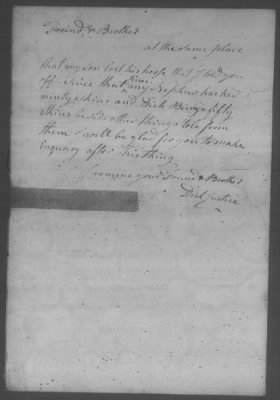 Freind & Brother
at the same place
that my son Lost his horse that I told you
off Since that time my Nephew has had
ninty skins and Dick Benge fifty
skins besides other things stole from
them I will be glad for you to make
Enquiry after this thing
I remaine your Freind & Brother
Dick Justice